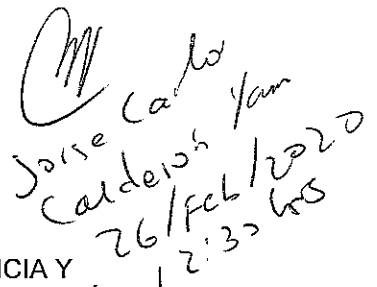 Jorge Carlo
Calderon Yam
26/Feb/2020
12:30 hrs
NCIA Y